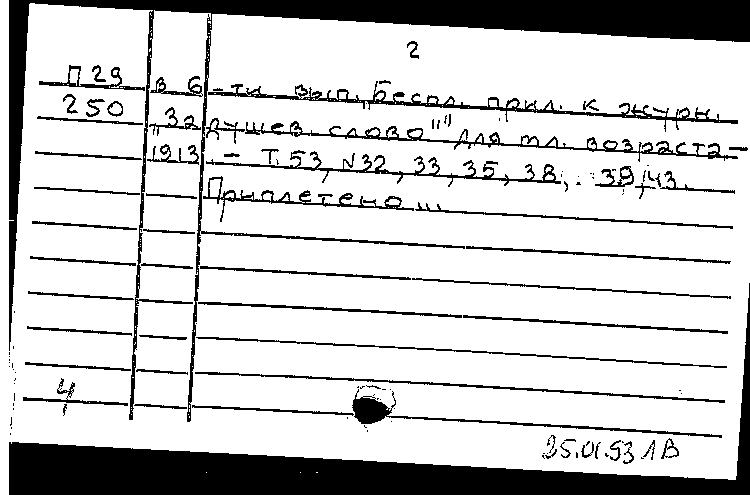 2
П 29 в 6-ти вып. „Беспл. прил. к журн.
250 „Задушев. слово"" для мл. возраста.—
1913. – Т. 53, N32, 33, 35, 38, 39, 43.
Приплетено...
4
25.01.53 ЛВ